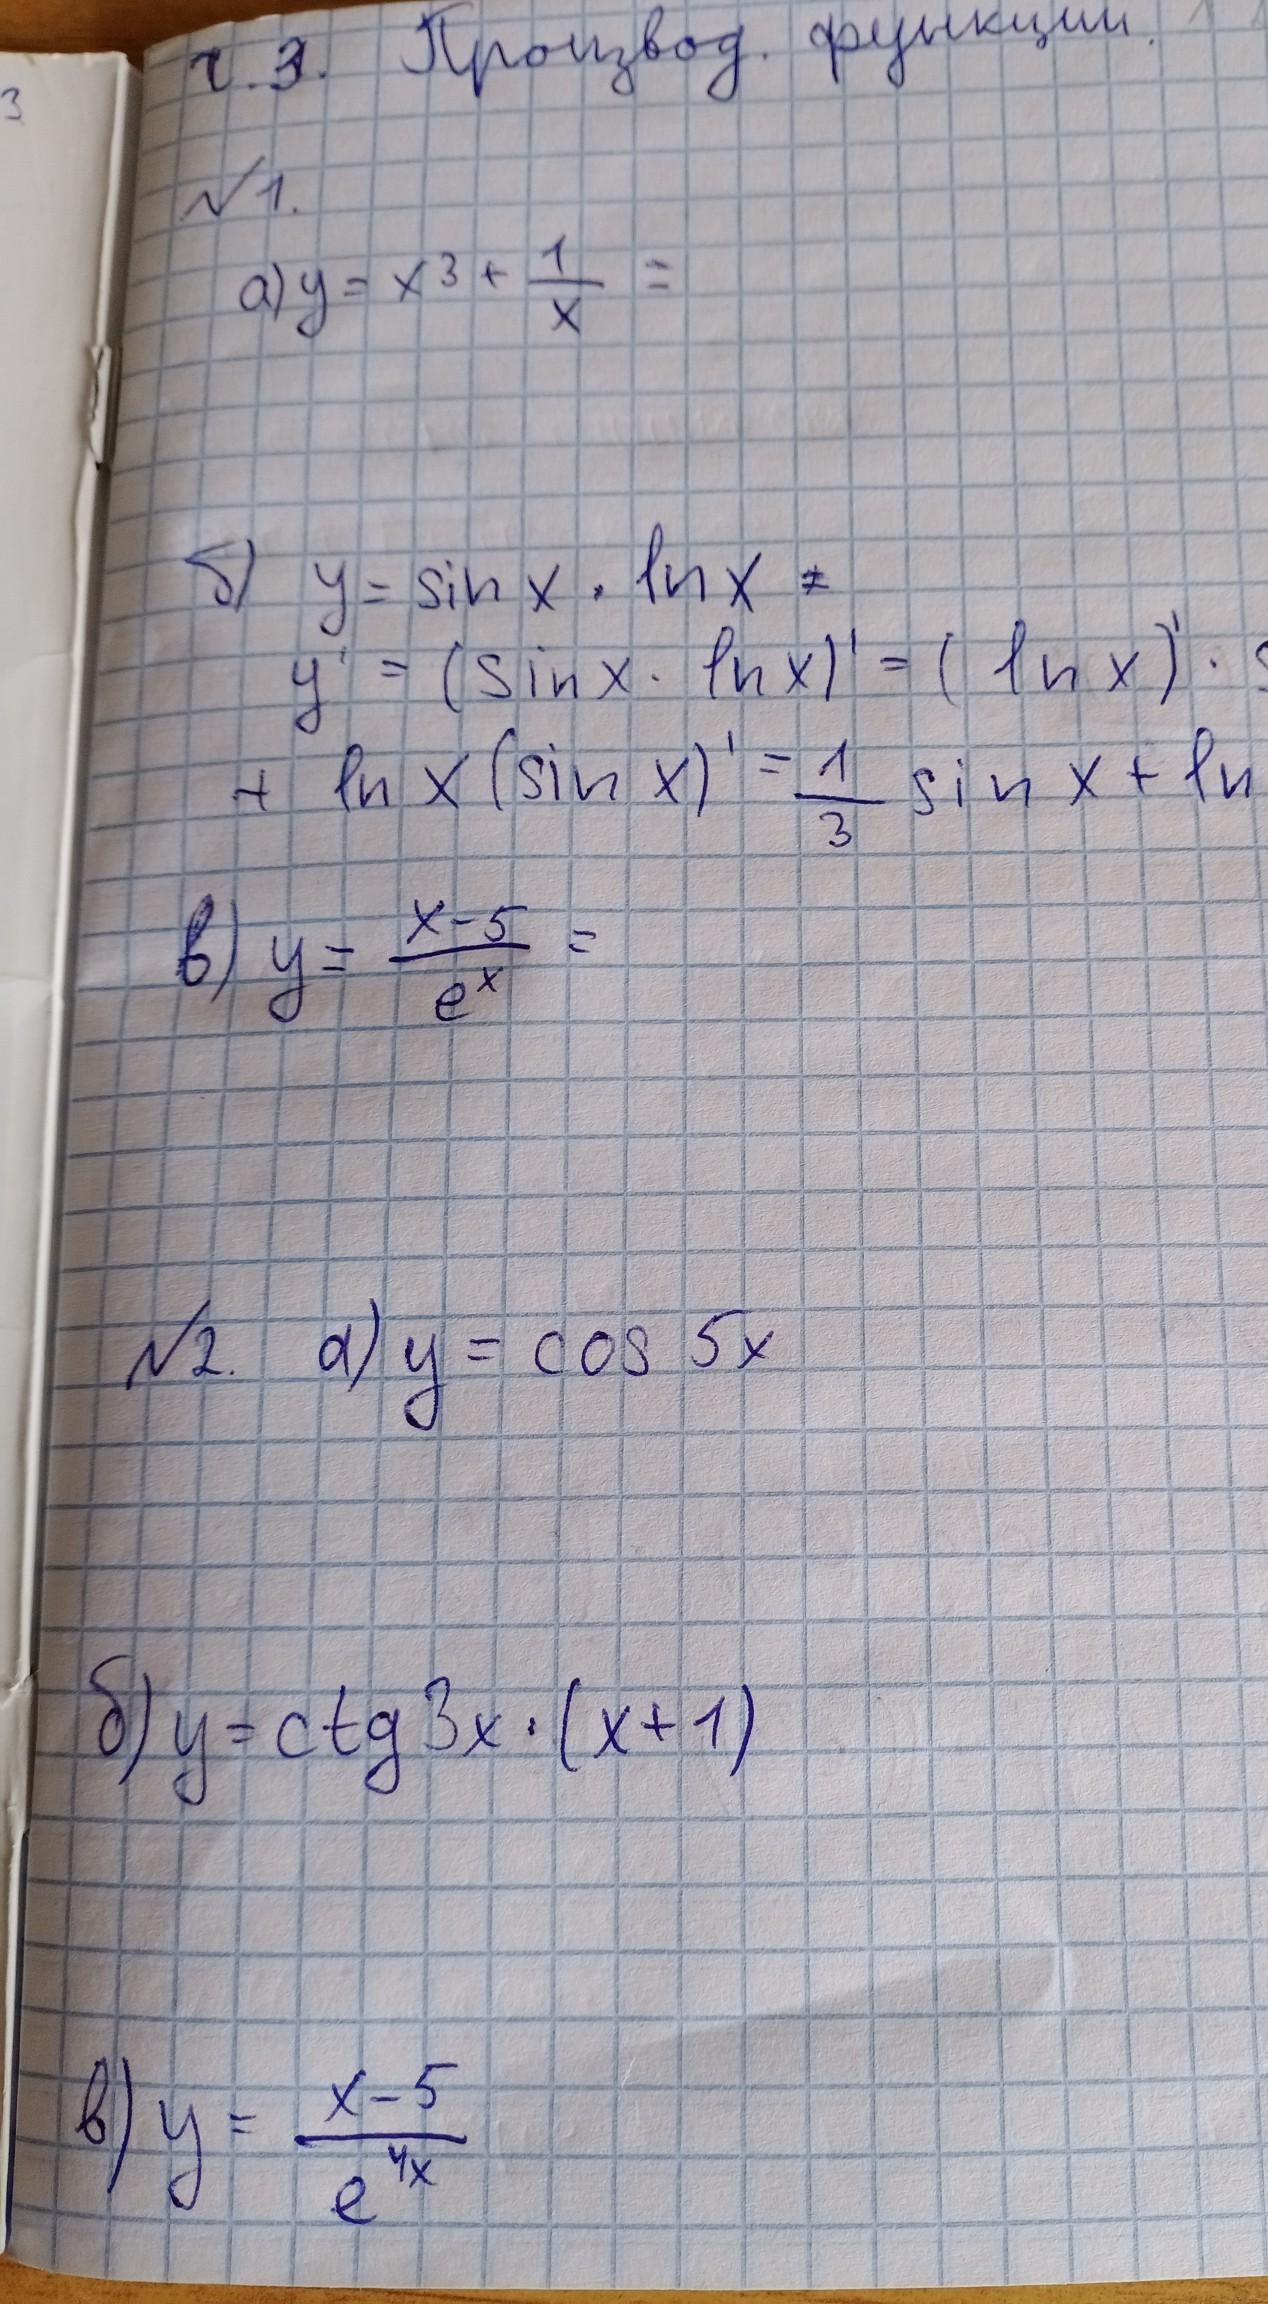 ч.3. Производ. функции.
3
№1.
а) y = x³ + 1/x =
б) y = sin x · ln x =
y' = (sin x · ln x)' = (ln x)' ·
+ ln x (sin x)' = 1/3 sin x + ln
в) y = (x-5)/e^x =
№2. а) y = cos 5x
б) y = ctg 3x · (x+1)
в) y = (x-5)/e^(4x)